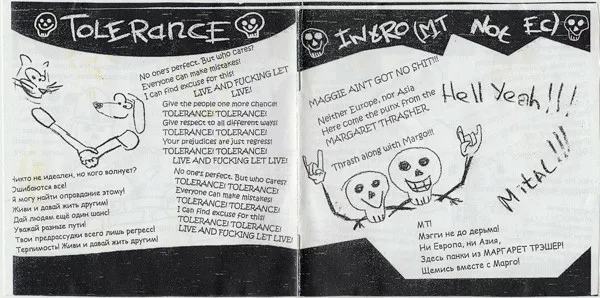 TOLERANCE
No one's perfect. But who cares?
Everyone can make mistakes!
I can find excuse for this!
LIVE AND FUCKING LET
LIVE!
Give the people one more chance!
TOLERANCE! TOLERANCE!
Give respect to all different ways!
TOLERANCE! TOLERANCE!
Your prejudices are just regress!
TOLERANCE! TOLERANCE!
LIVE AND FUCKING LET LIVE!
No one's perfect. But who cares?
TOLERANCE! TOLERANCE!
Everyone can make mistakes!
TOLERANCE! TOLERANCE!
I can find excuse for this!
TOLERANCE! TOLERANCE!
TOLERANCE! TOLERANCE!
LIVE AND FUCKING LET LIVE!
Никто не идеален, но кого волнует?
Ошибаются все!
Я могу найти оправдание этому!
Живи и давай жить другим!
Дай людям ещё один шанс!
Уважай разные пути!
Твои предрассудки всего лишь регресс!
Терпимость! Живи и давай жить другим!
INTRO (MT NOT EC)
MAGGIE AIN'T GOT NO SHIT!!!
Neither Europe, nor Asia
Here come the punx from the
MARGARET THRASHER
Thrash along with Margo!!!
Hell Yeah!!!
Mital!!!
МТ!
Мэгги не до дерьма!
Ни Европа, ни Азия,
Здесь панки из МАРГАРЕТ ТРЭШЕР!
Щемись вместе с Марго!